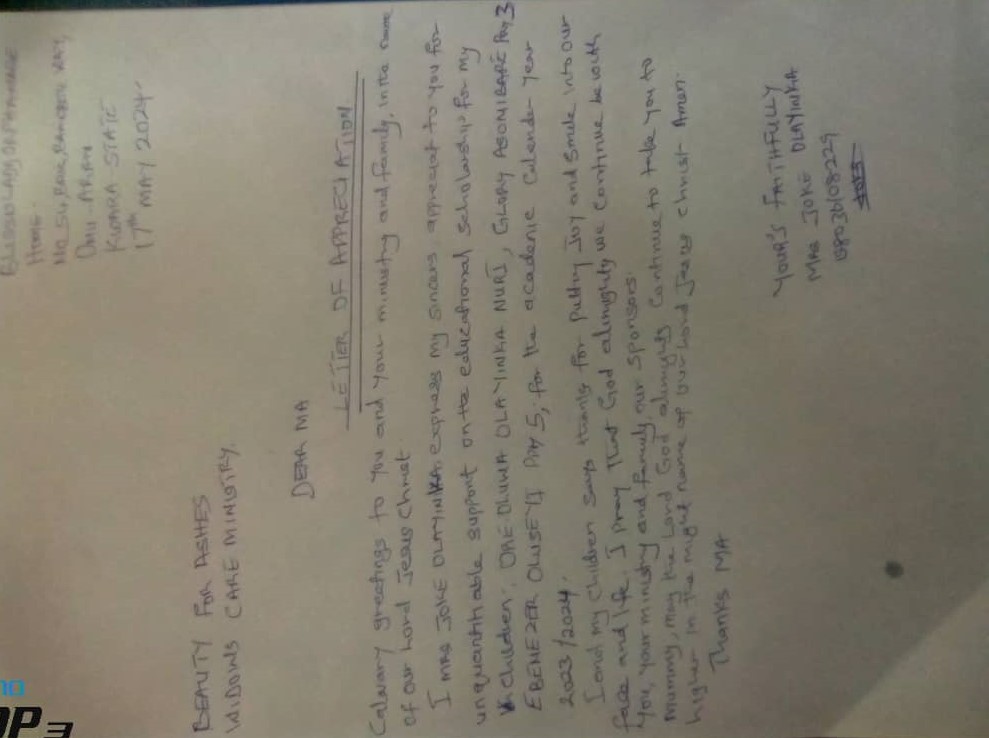 HOME.
OMU-ARAN
KWARA STATE
17th MAY 2024.
BEAUTY FOR ASHES
WIDOWS CARE MINISTRY.
DEAR MA
LETTER OF APPRECIATION
Calvary greetings to you and your ministry and family, in the name
of our Lord Jesus Christ.
I MRS JOKE OLAYINKA express my sincers appreciat to you for
unquantifiable support on the educational scholarship for my
children; ORE-OLUWA OLAYINKA NUR1, GLORY ASONIBARE PRY 3
EBENEZER OLUSEYI PRY 5, for the academic Calender year
2023/2024.
I and my children says thanks for putting Joy and Smile into our
face and life. I pray that God almighty we continue be with
you, your ministry and family, our sponsors.
Mummy, may the Lord God almighty continue to take you to
higher in the might name of our Lord Jesus Christ Amen.
Thanks MA
YOUR'S FAITHFULLY
MRS JOKE OLAYINKA
08036108229